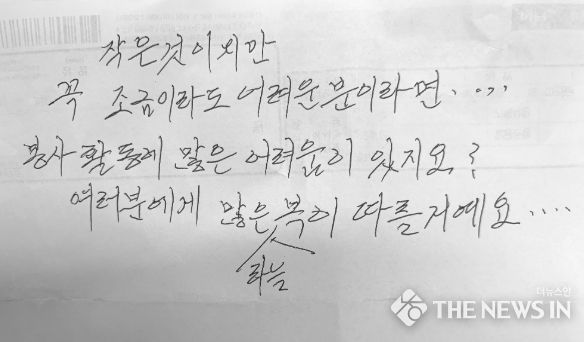 작은것이지만
꼭 조금이라도 어려운분이라면....
봉사활동에 많은 어려움이 있지요?
여러분에게 많은 복이 따를거예요....
하늘
더뉴스인
THE NEWS IN